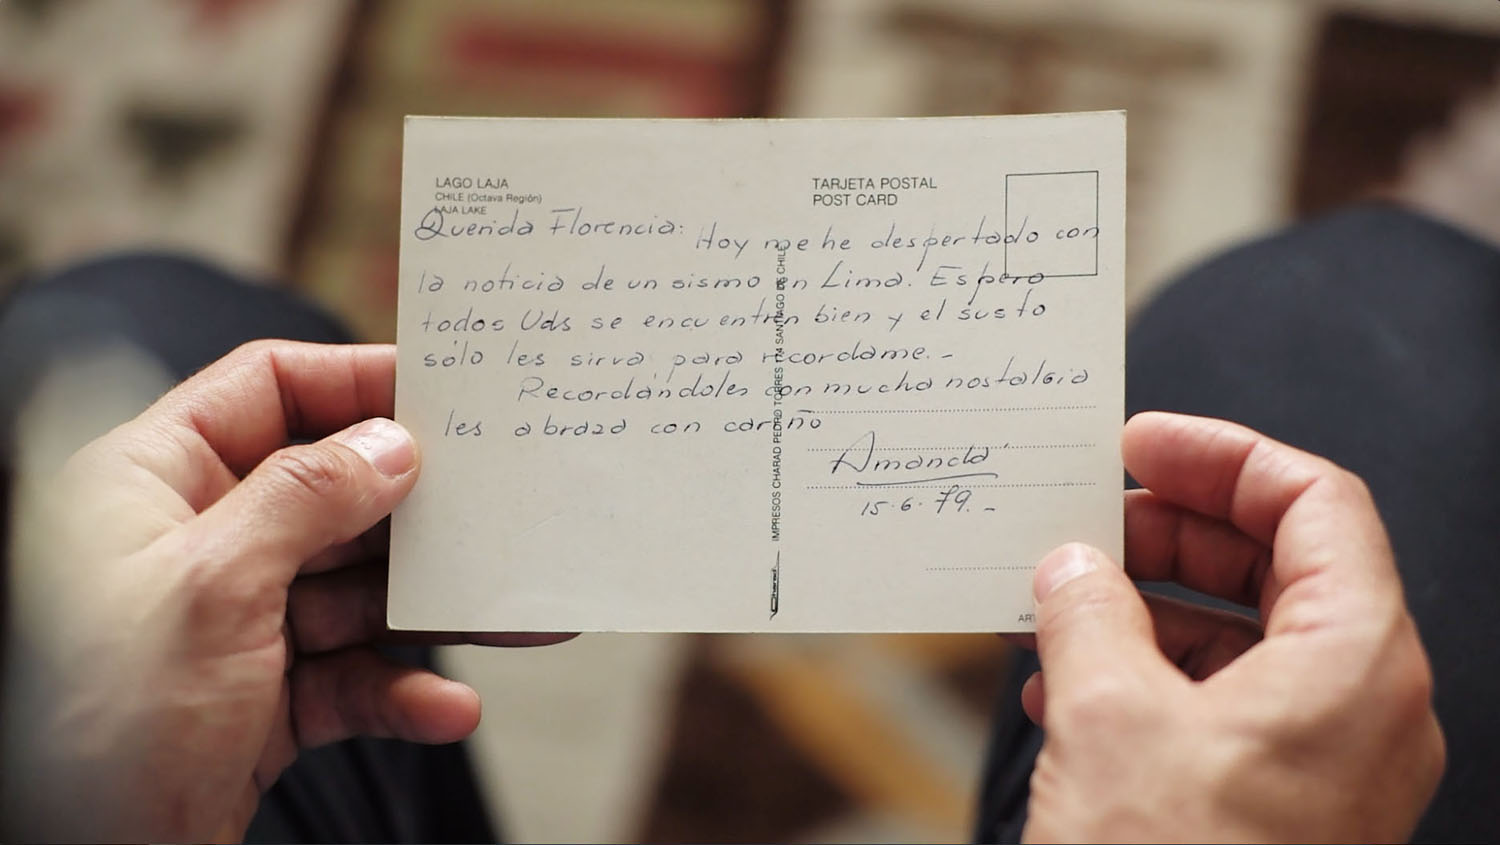 LAGO LAJA
CHILE (Octava Región)
LAJA LAKE
TARJETA POSTAL
POST CARD
Querida Florencia: Hoy me he despertado con
la noticia de un sismo en Lima. Espero
todos Uds se encuentren bien y el susto
sólo les sirva para recordarme.-
Recordándoles con mucha nostalgia
les abraza con cariño
Amanda
15.6.79.-
IMPRESOS CHARAD PEDRO TORRES 174 SANTIAGO DE CHILE
Charad